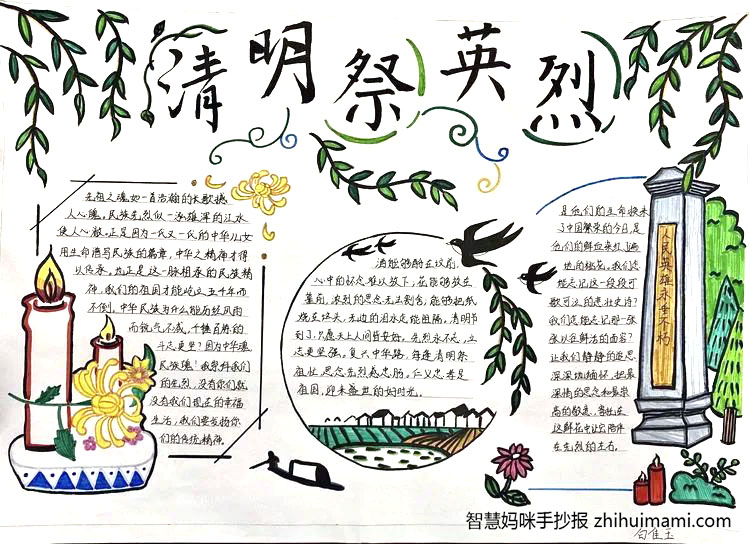 清明祭英烈
先祖之魂如一首浩瀚的长歌撼
人心魄,民族先烈似一派雄浑的江水
使人心敬,正是因为一代又一代的中华儿女
用生命谱写民族的篇章,中华之精神才得
以传承,也正是这一脉相承的民族精
神,我们的祖国才能屹立五千年而
不倒,中华民族为什么能历经风雨
而锐气不减,千锤百炼的
斗志更坚?因为中华魂
民族魂!我崇拜我们
的先烈,没有你们就
没有我们现在的幸福
生活,我们要发扬你
们的传统精神。
酒能够酹在坟前,
心中的怀念难以放下,花能够放在
墓前,浓烈的思念无法割舍,能够把纸
烧在坟头,无边的泪水无能阻隔,清明节
到了,只愿天上人间皆安好。先烈永不忘,立
志更坚强。复兴中华路,每逢清明祭
祖时,思念先烈表忠肠。仁义忠孝是
祖国,迎来盛世的好时光。
是他们的生命换来
了中国繁荣的今日,是
他们的鲜血染红了遍
地的桃花,我们怎
能忘记这一段段可
歌可泣的悲壮史诗?
我们怎能忘记那一张
张以在鲜活的面容?
让我们静静的遥思,
深深地缅怀,把最
深情的思念和最崇
高的敬意,寄托在
这鲜花中让它陪伴
在先烈的左右。
人民英雄永垂不朽
智慧妈咪手抄报 zhihuimami.com